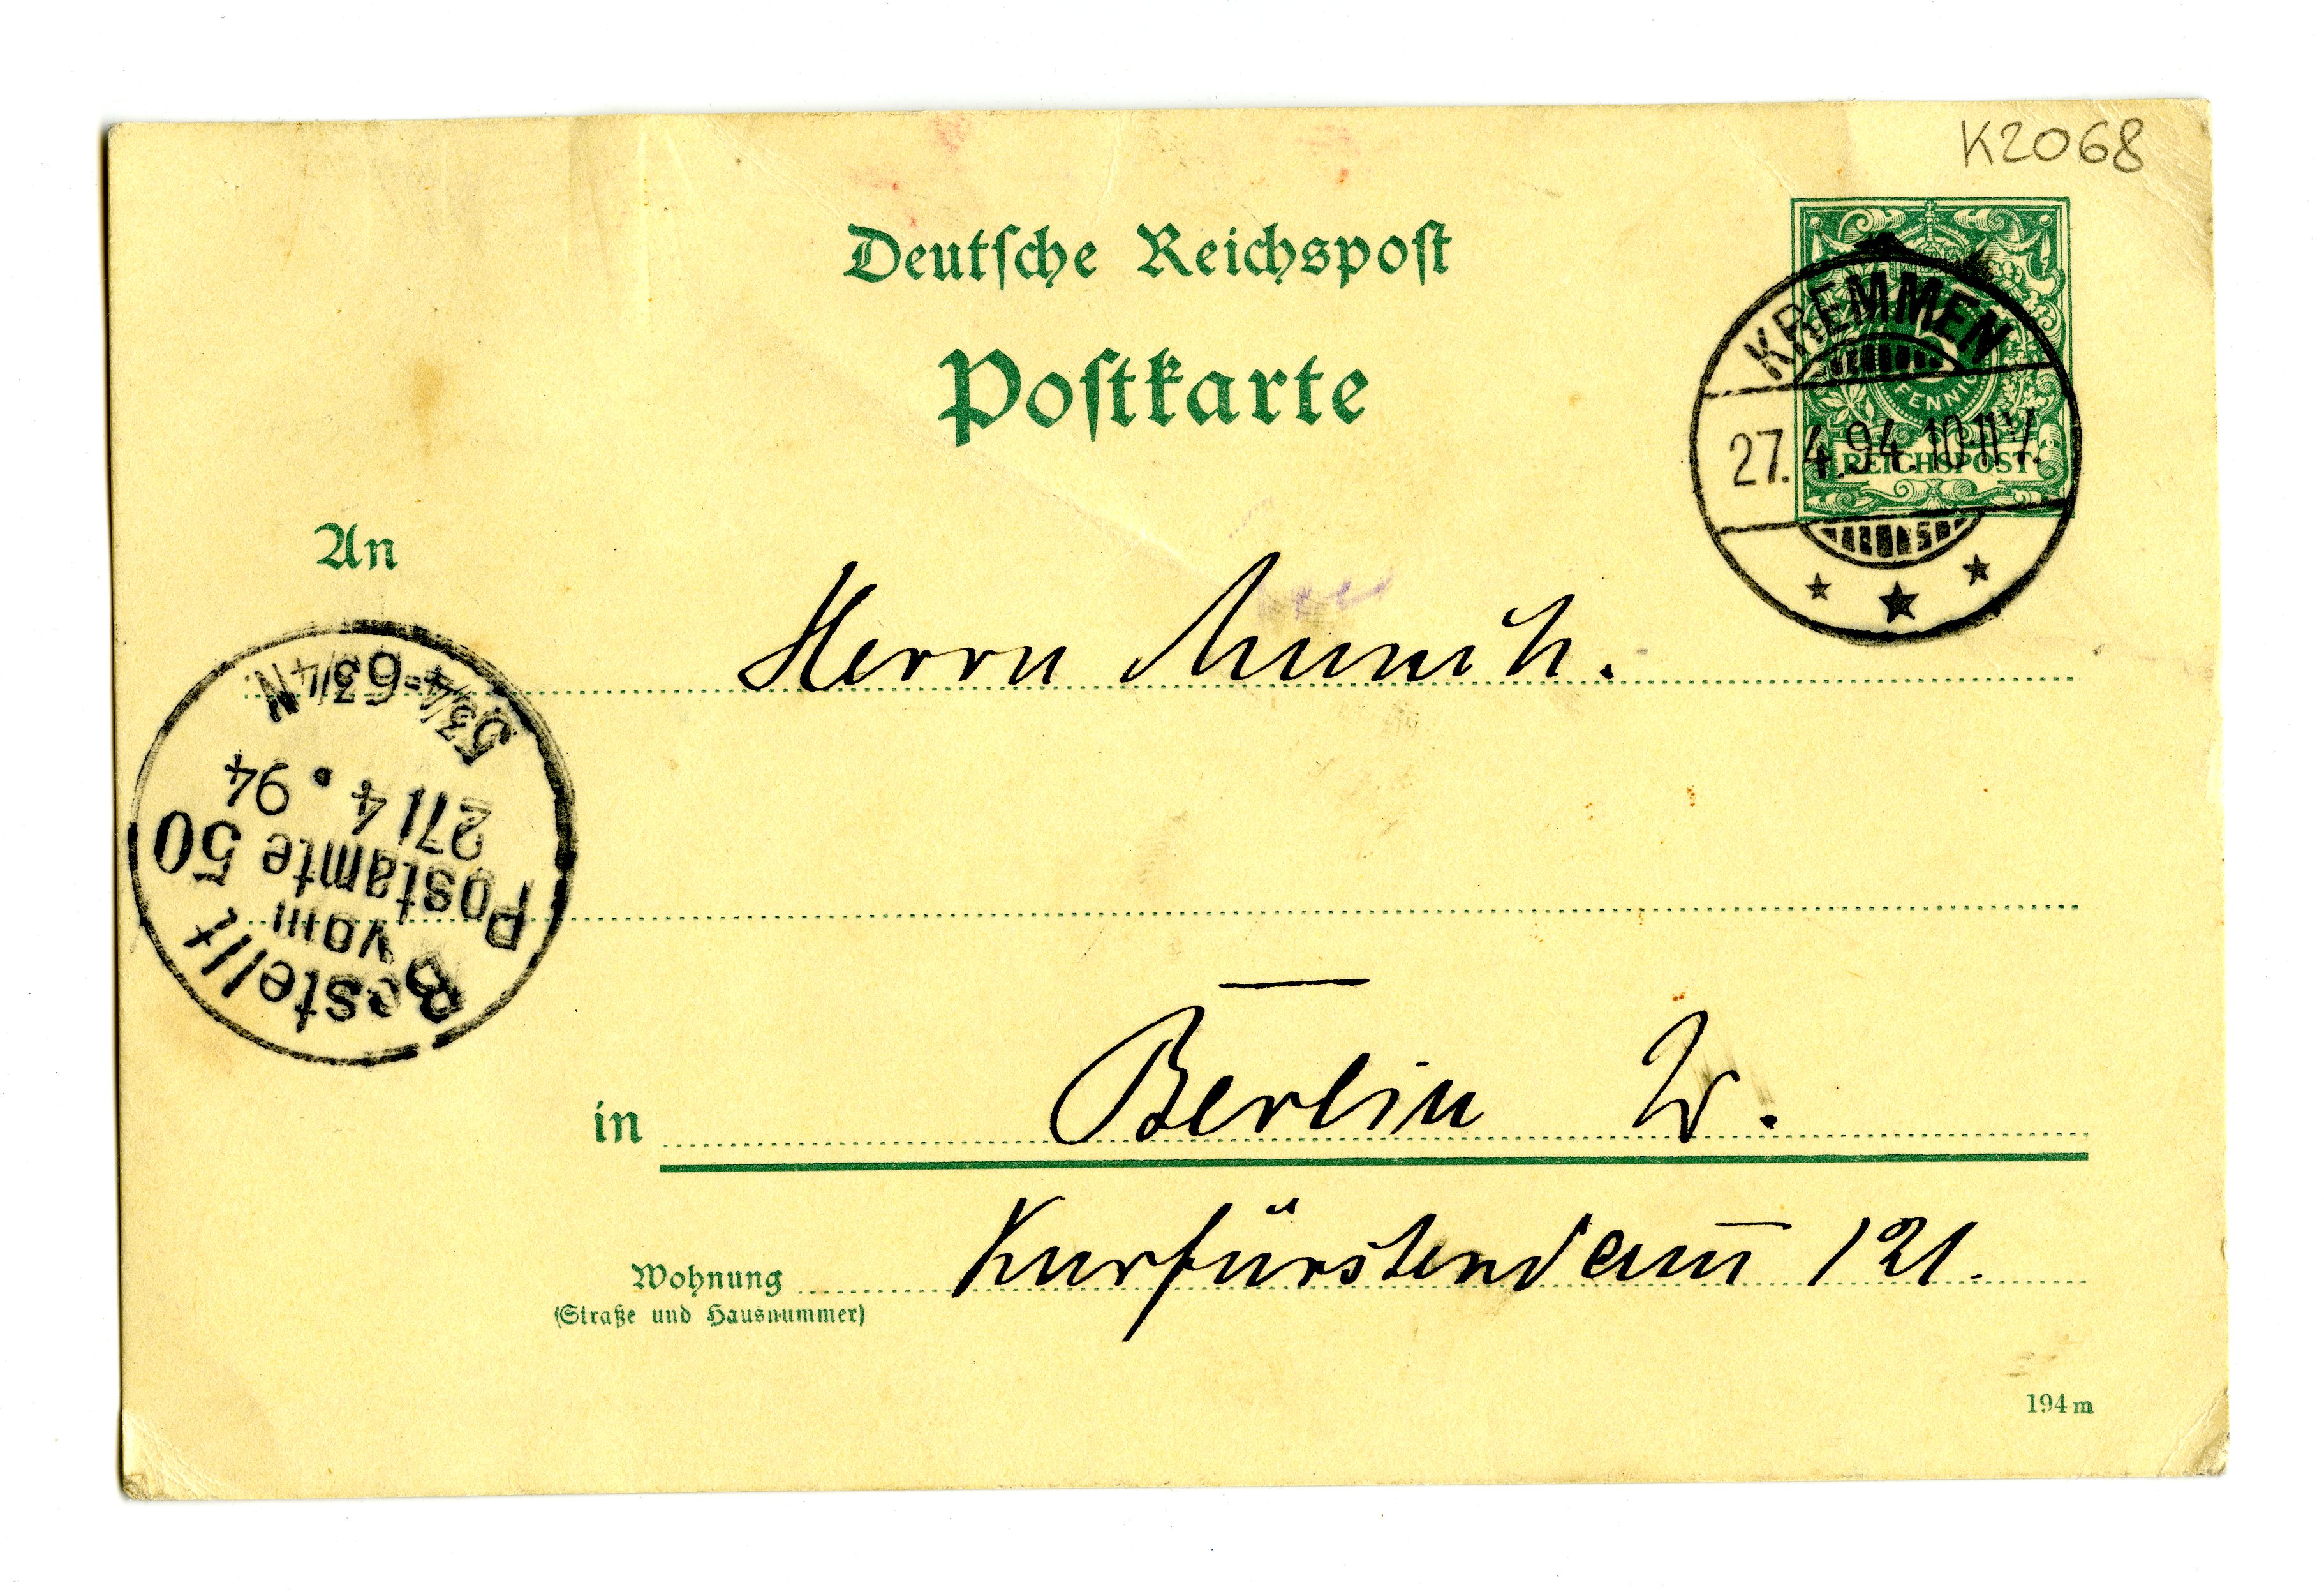 K2068
Deutsche Reichspost
Postkarte
KREMMEN
PFENNIG
27.4.94.10-11V.
REICHSPOST
An
Herrn Munch.
5 3/4-6 3/4 N.
27/4.94
Postamte 50
vom
Bestellt
in Berlin W.
Kurfürstendam̅ 121.
Wohnung
(Straße und Hausnummer)
194 m